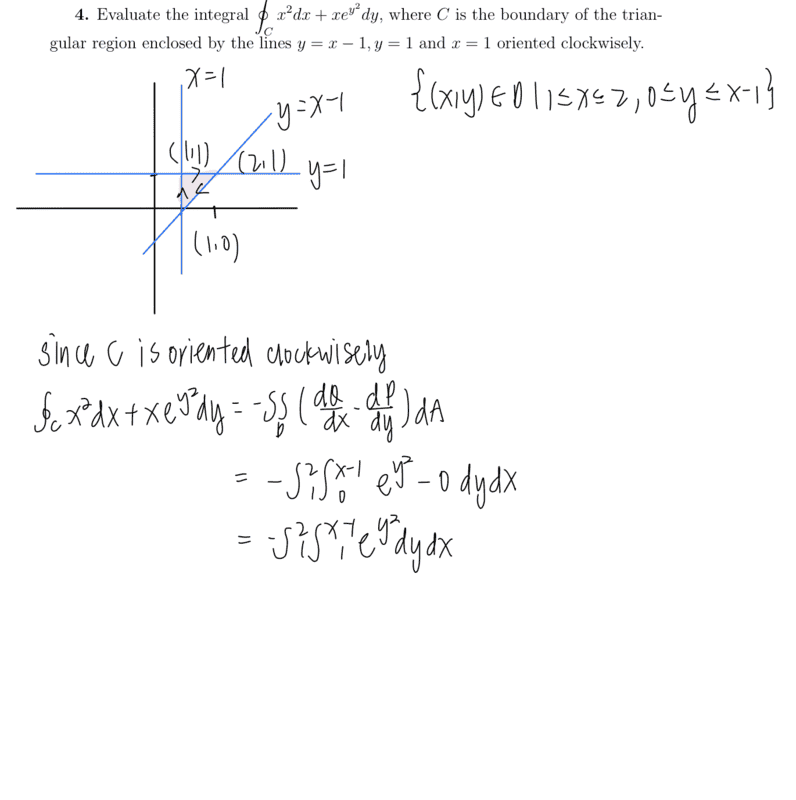 4. Evaluate the integral ∮_C x²dx + xe^{y²}dy, where C is the boundary of the trian-
gular region enclosed by the lines y = x − 1, y = 1 and x = 1 oriented clockwisely.
x=1
{(x,y) ∈ D | 1 ≤ x ≤ 2, 0 ≤ y ≤ x-1}
y=x-1
(1,1) (2,1) y=1
(1,0)
Since C is oriented clockwisely
∮_C x²dx + xe^{y²}dy = -∫∫_D (dQ/dx - dP/dy) dA
= -∫_1^2 ∫_0^{x-1} e^{y²} - 0 dy dx
= -∫_1^2 ∫_1^{x-1} e^{y²} dy dx